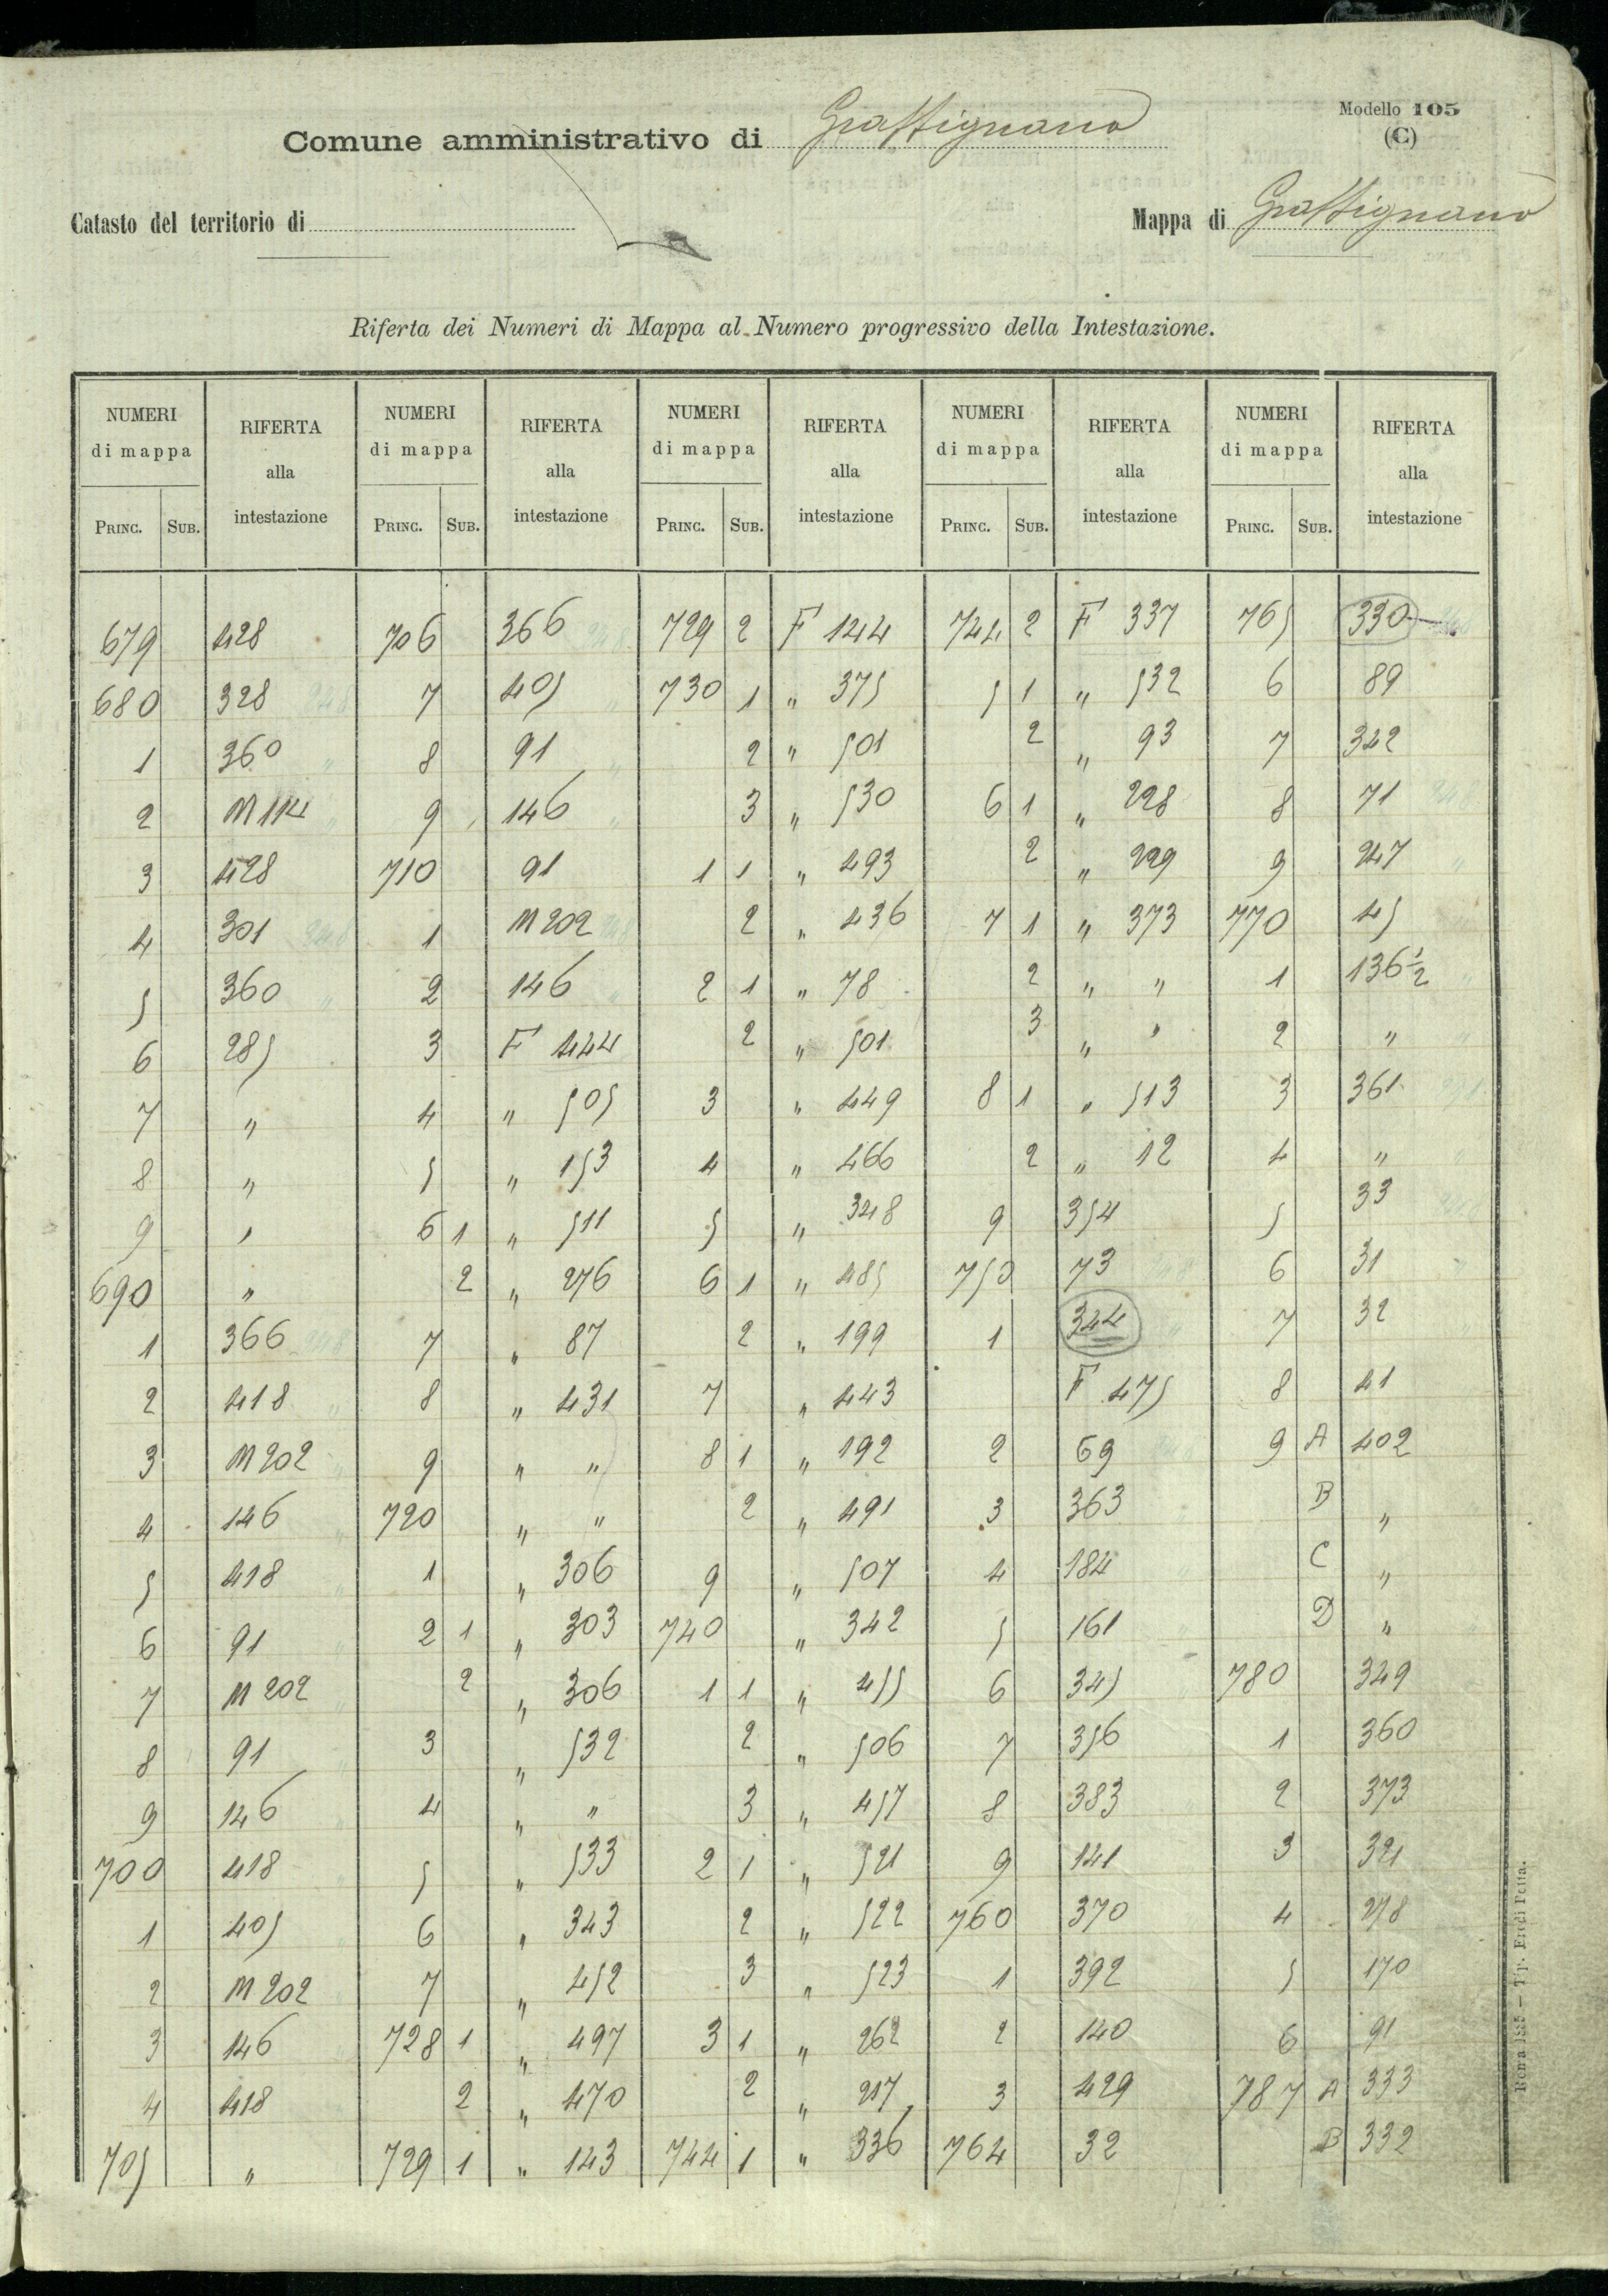 Modello 105
(C)
Comune amministrativo di Graffignano
Catasto del territorio di
Mappa di Graffignano
Riferta dei Numeri di Mappa al Numero progressivo della Intestazione.
NUMERI di mappa RIFERTA alla intestazione NUMERI di mappa RIFERTA alla intestazione NUMERI di mappa RIFERTA alla intestazione NUMERI di mappa RIFERTA alla intestazione NUMERI di mappa RIFERTA alla intestazione
PRINC. SUB. PRINC. SUB. PRINC. SUB. PRINC. SUB. PRINC. SUB.
679 428 706 366 729 2 F 144 744 2 F 337 765 330
680 328 7 405 730 1 " 375 5 1 " 532 6 89
1 360 8 91 2 " 501 2 " 93 7 342
2 M 114 9 146 3 " 530 6 1 " 228 8 71
3 428 710 91 1 1 " 493 2 " 229 9 247
4 301 1 M 202 2 " 436 7 1 " 373 770 45
5 360 2 146 2 1 " 78 2 " " 1 136 1/2
6 285 3 F 444 2 " 501 3 " " 2 "
7 " 4 " 505 3 " 449 8 1 " 513 3 361
8 " 5 " 153 4 " 466 2 " 12 4 "
9 " 6 1 " 511 5 " 348 9 354 5 33
690 " 2 " 276 6 1 " 485 750 73 6 31
1 366 7 " 87 2 " 199 1 344 7 32
2 418 8 " 431 7 " 443 F 475 8 41
3 M 202 9 " " 8 1 " 192 2 69 9 A 402
4 146 720 " " 2 " 491 3 363 B "
5 418 1 " 306 9 " 507 4 184 C "
6 91 2 1 " 303 740 " 342 5 161 D "
7 M 202 2 " 306 1 1 " 455 6 345 780 349
8 91 3 " 532 2 " 506 7 356 1 360
9 146 4 " " 3 " 457 8 383 2 373
700 418 5 " 533 2 1 " 521 9 141 3 321
1 405 6 " 343 2 " 522 760 370 4 278
2 M 202 7 " 452 3 " 523 1 392 5 170
3 146 728 1 " 497 3 1 " 262 2 140 6 91
4 418 2 " 470 2 " 217 3 429 787 A 333
705 " 729 1 " 143 744 1 " 336 764 32 B 332